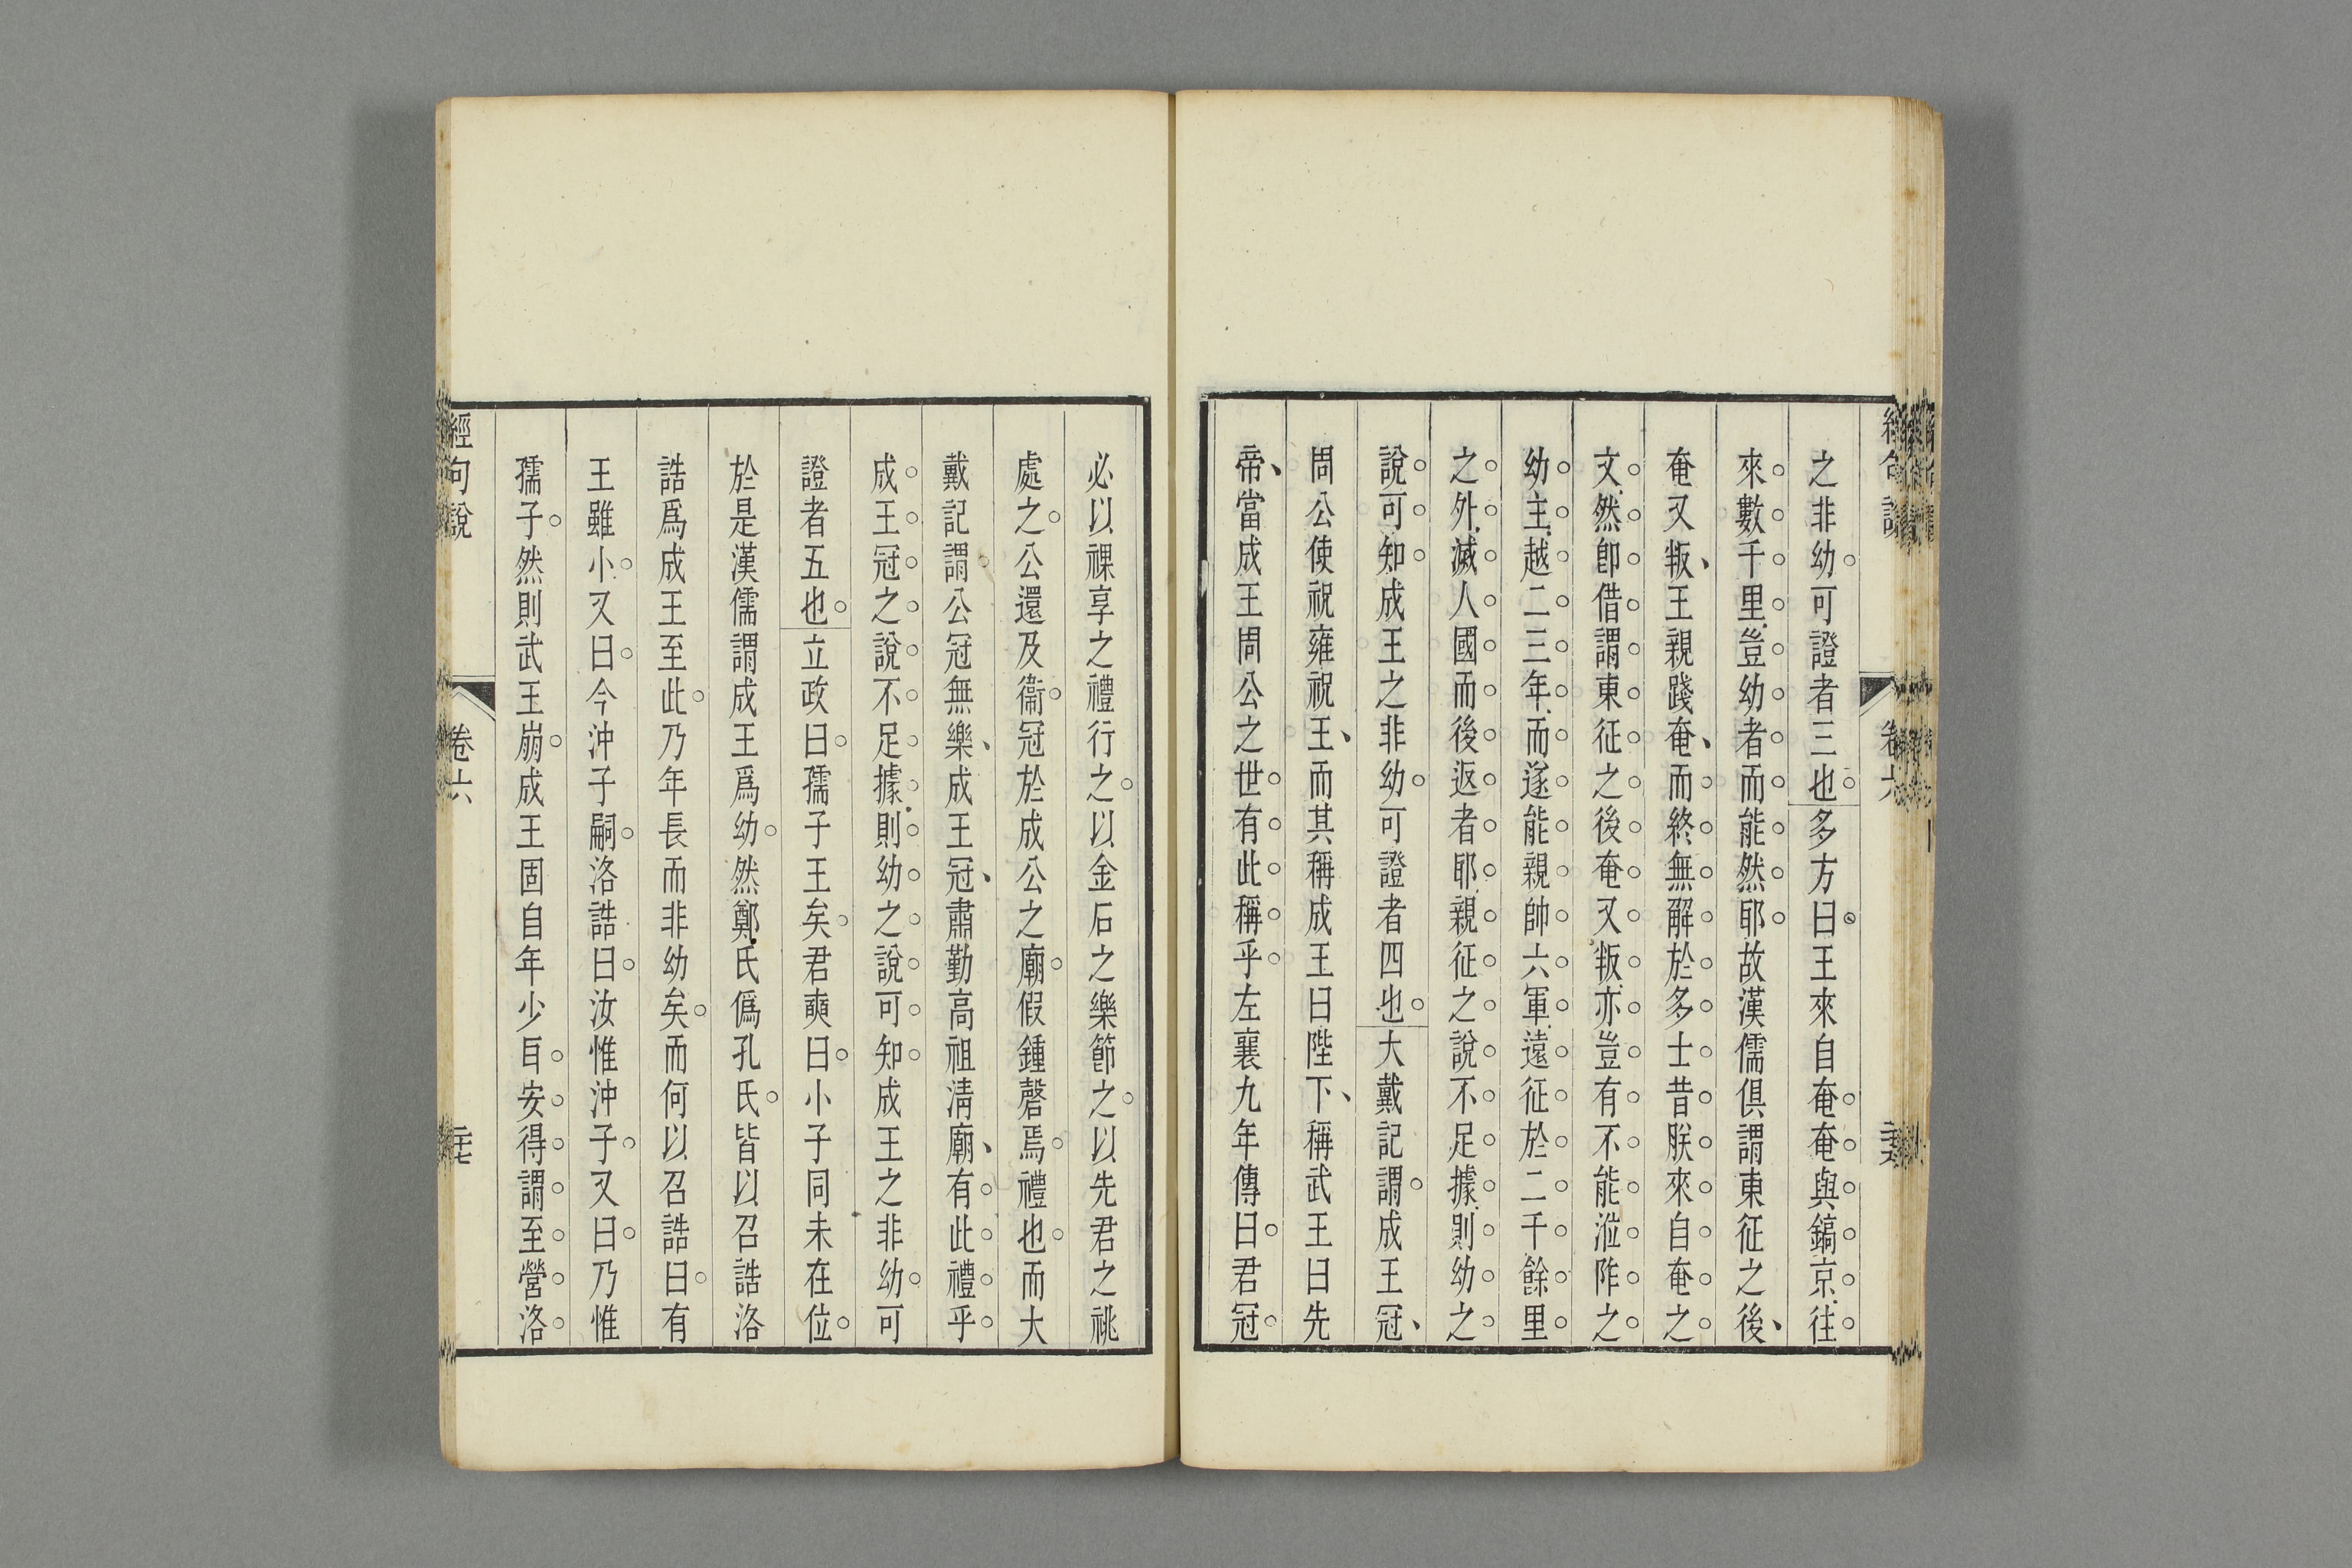 之非幼可證者三也多方曰王來自奄奄與鎬京往
來數千里豈幼者而能然耶故漢儒俱謂東征之後
奄又叛王親踐奄而終無解於多士昔朕來自奄之
文然卽借謂東征之後奄又叛亦豈有不能涖阼之
幼主越二三年而遂能親帥六軍遠征於二千餘里
之外滅人國而後返者耶親征之說不足據則幼之
說可知成王之非幼可證者四也大戴記謂成王冠
周公使祝雍祝王而其稱成王曰陛下稱武王曰先
帝當成王周公之世有此稱乎左襄九年傳曰君冠
必以祼享之禮行之以金石之樂節之以先君之祧
處之公還及衞冠於成公之廟假鍾磬焉禮也而大
戴記謂公冠無樂成王冠肅勤高祖淸廟有此禮乎
成王冠之說不足據則幼之說可知成王之非幼可
證者五也立政曰孺子王矣君奭曰小子同未在位
於是漢儒謂成王爲幼然鄭氏僞孔氏皆以召誥洛
誥爲成王至此乃年長而非幼矣而何以召誥曰有
王雖小又曰今沖子嗣洛誥曰汝惟沖子又曰乃惟
孺子然則武王崩成王固自年少耳安得謂至營洛
經句說
卷六
二十七